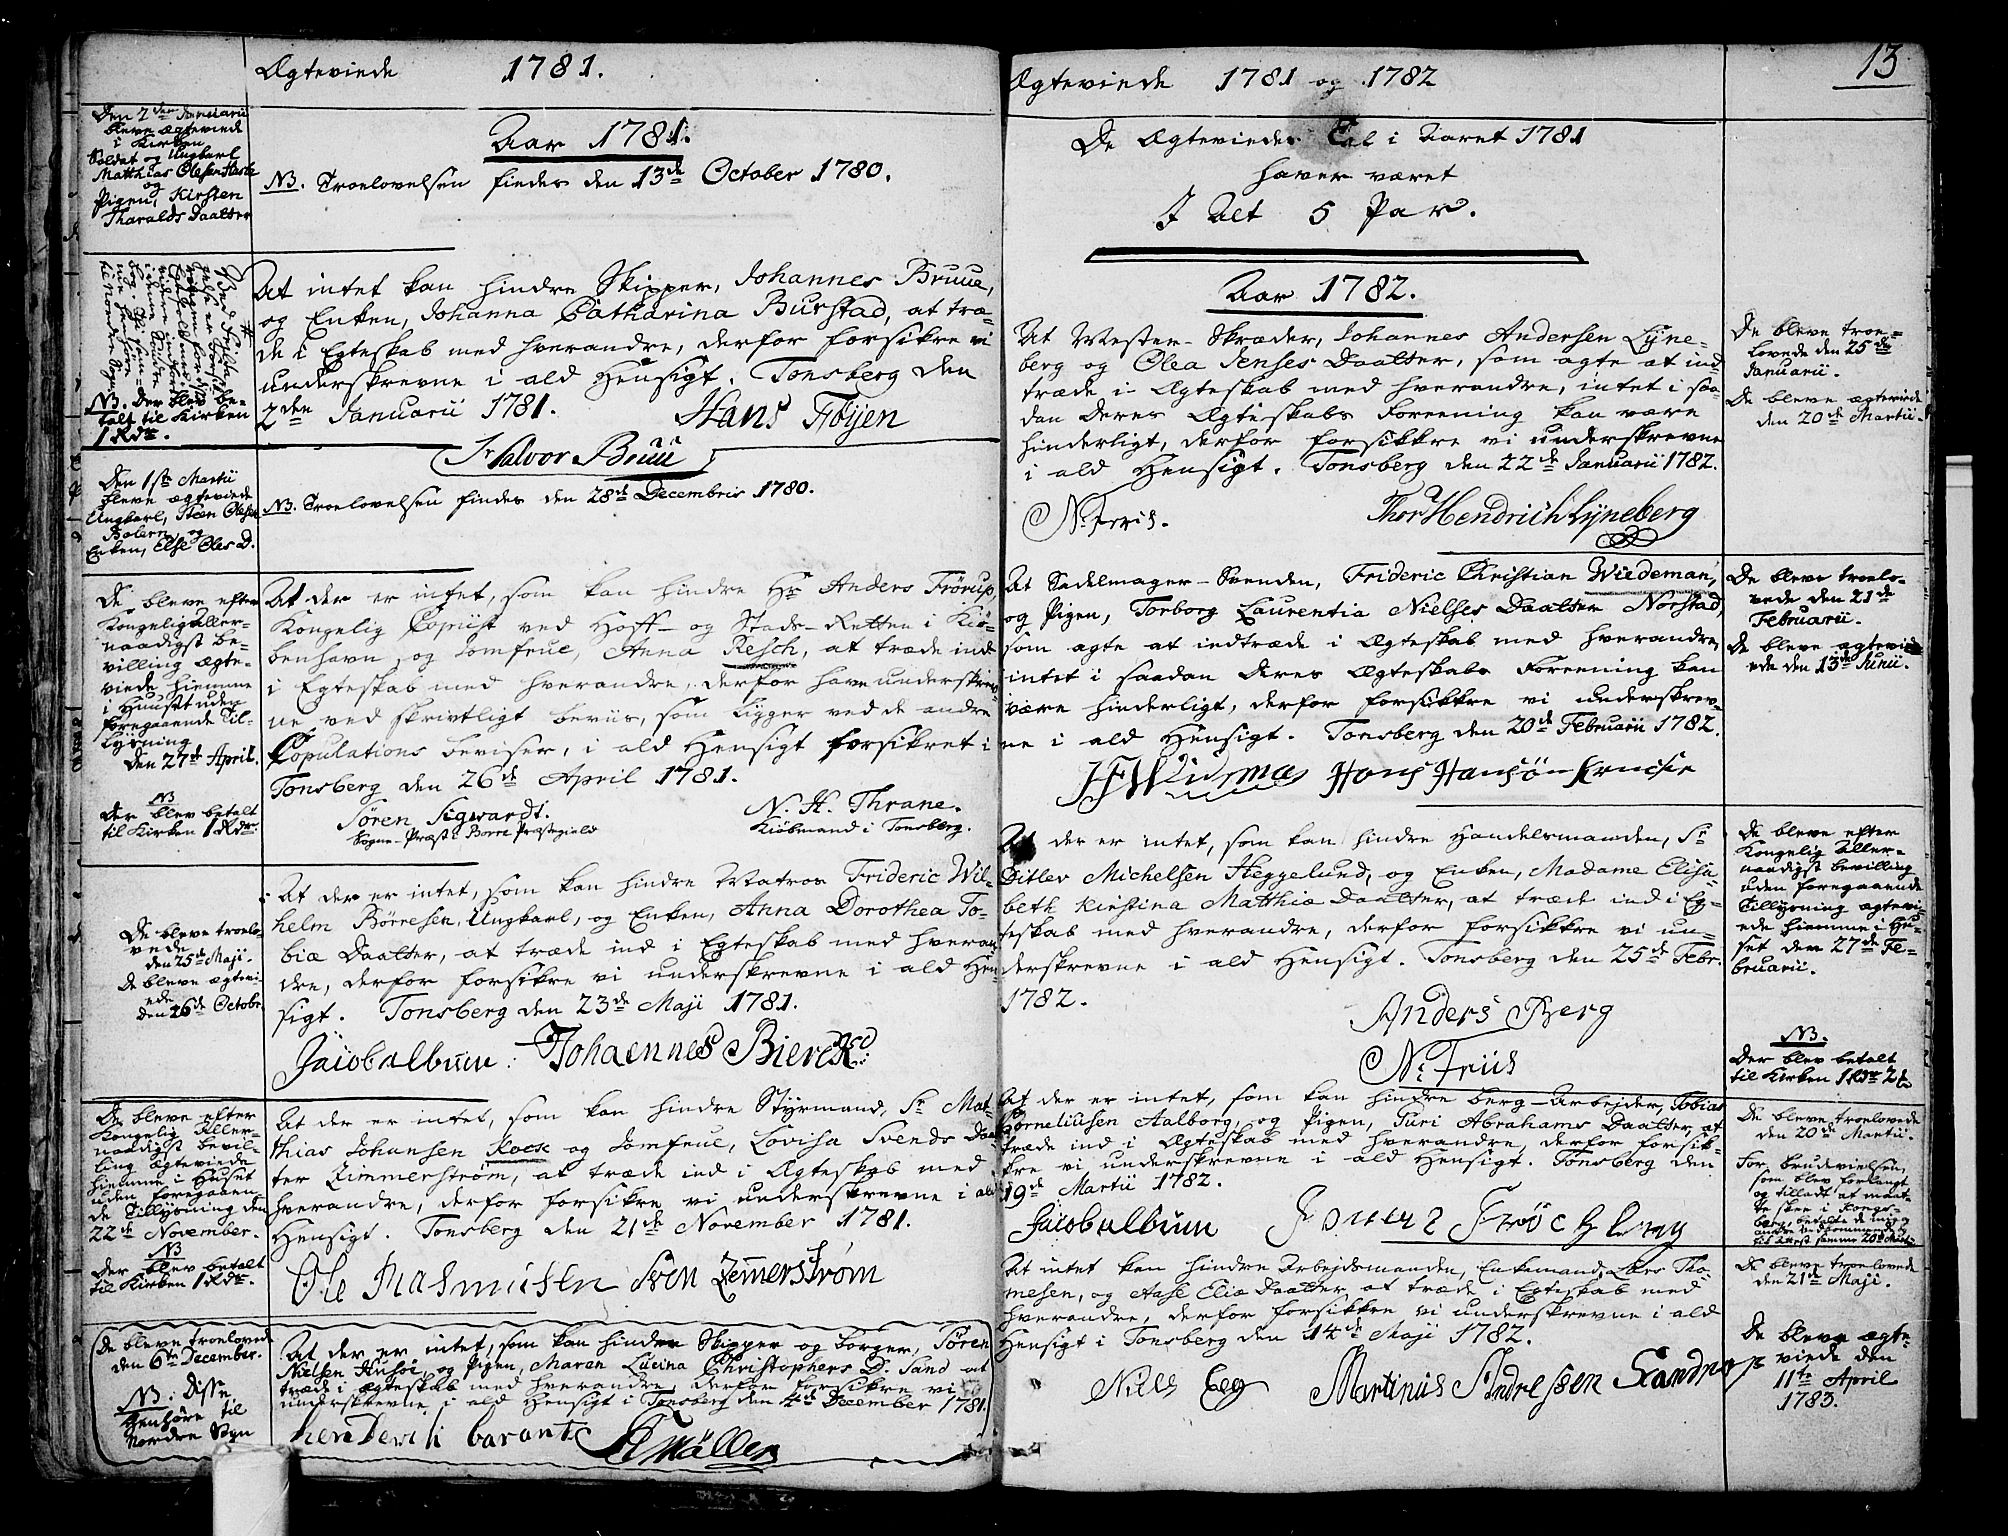 Ægteviede 1781.
Den 2den Januarii
bleve ægteviede
i Kirken
Soldat og Ungkarl
Matthias Olesen
og
Pigen, Kirsten
Tharalds Daatter
Aar 1781.
NB. Troelovelsen findes den 13de October 1780.
NB. Der blev be-
talt til Kirken
1 Rdr.
At intet kan hindre Skipper, Johannes Bruun,
og Enken, Johanna Catharina Burstad, at træ-
de i Egteskab med hverandre, derfor forsikre vi
underskrevne i ald Hensigt. Tonsberg den
2den Januarii 1781. Hans Föyen
Halvor Bruu
Den 1ste Martii
bleve ægteviede
Ungkarl, Steen Olesen
og
Enken, Else Oles D.
NB. Troelovelsen findes den 28de Decembris 1780.
De bleve efter
Kongelig Aller-
naadigst Be-
villing ægte-
viede hiemme
i Huuset uden
foregaaende Til-
lysning
den 27de April.
NB
Der blev betalt
til Kirken 1 Rdr.
At der er intet, som kan hindre Hr. Anders Frörup,
Kongelig Copiist ved Hoff- og Stads-Retten i Kiö-
benhavn, og Jomfrue, Anna Resch, at træde ind
i Egteskab med hverandre, derfor have underskrev-
ne ved skrivtligt beviis, som ligger ved de andre
Copulations beviser, i ald Hensigt forsikret i
Tonsberg den 26de April 1781.
Sören Sigwardt. N. H. Thrane.
Sogne-Præst i Borre Præstegield Kiöbmand i Tonsberg.
De bleve troelo-
vede
den 25de Maji.
De bleve ægtevi-
ede
den 26de Octobr.
At der er intet, som kan hindre Matros Frideric Wil-
helm Börresen, Ungkarl, og Enken, Anna Dorothea To-
biæ Daatter, at træde ind i Egteskab med hveran-
dre, derfor forsikre vi underskrevne i ald Hen-
sigt. Tonsberg den 23de Maji 1781.
Jacob album Johaennes Bierck
De bleve efter
Kongelig Aller-
naadigst Bevil-
ling ægteviede
hiemme i Huset
uden foregaaen-
de Tillysning den
22de November.
NB
Der blev betalt
til Kirken 1 Rdr.
At der er intet, som kan hindre Styrmand, Sr. Mat-
thias Johansen Kock og Jomfrue, Lovisa Svends Daa-
ter Zimmerström, at træde ind i Ægteskab med
hverandre, derfor forsikre vi underskrevne i ald
Hensigt. Tonsberg den 21de November 1781.
Ole Rasmusen Sven Zemerström
De bleve troelovede
den 6te December.
NB. Disse
Henhöre til
Nordre Sogn
At der er intet, som kan hindre Skipper og borger, Sören
Nielsen Husöe, og Pigen, Maren Lucina Christophers D. Sand at
træde i ægteskab med hverandre, derfor forsikre vi
underskrevne i ald Hensigt i Tonsberg den 4de December 1781.
Möller
Ægteviede 1781 og 1782 13
De Ægteviedes Tal i Aaret 1781
haver været
I Alt 5 Par.
Aar 1782.
At Mester-Skræder, Johannes Andersen Lyne-
berg og Olea Jenses Daatter, som agte at ind-
træde i Ægteskab med hverandre, intet i saa-
dan deres Ægteskabs Foreening kan være
hinderligt, derfor forsikkre vi underskrevne
i ald Hensigt. Tonsberg den 22de Januarii 1782.
N. Friis. Thor Hendrich Lyneberg
De bleve troe-
lovede den 25de
Januarii.
De bleve ægteviede
den 20de Martii.
At Sadelmager-Svenden, Frideric Christian Wiedeman,
og Pigen, Torborg Laurentia Nielses Daatter Norstad,
som agte at indtræde i Ægteskab med hverandre,
intet i saadan deres Ægteskabs Foreening kan
være hinderligt, derfor forsikkre vi underskrev-
ne i ald Hensigt. Tonsberg den 20de Februarii 1782.
Hans Hansön
De bleve troelo-
vede den 21de
Februarii.
De bleve ægtevi-
ede den 13de Junii.
At der er intet, som kan hindre Handelsmanden, Sr.
Ditlev Michelsen Heggelund, og Enken, Madame Elisa-
beth Kirstina Matthiæ Daatter, at træde ind i Eg-
teskab med hverandre, derfor forsikkre vi un-
derskrevne i ald Hensigt. Tonsberg den 25de Febr.
1782.
Anders Berg
N. Friis
De bleve efter
Kongelig Aller-
naadigst bevilling
uden foregaaende
Tillysning ægtevi-
ede hiemme i Hu-
set den 27de Fe-
bruarii.
NB.
Der blev betalt
til Kirken 1 Rdr.
At der er intet, som kan hindre berg-Arbejder, Tobias
Corneliusen Aalborg, og Pigen, Turi Abrahams Daatter, at
træde ind i Ægteskab med hverandre, derfor forsik-
kre vi underskrevne i ald Hensigt. Tonsberg den
19de Martii 1782.
Jacob album
De bleve troelovede
den 20de Martii.
For brudevielsen,
som blev forlangt
og tilladt at maat-
te skee i Kongs-
berg, betalte de mig og
At intet kan hindre Arbejdsmanden, Enkemand, Lars Tho-
mesen, og Aase Eliæ Daatter, at træde i Egteskab med
hverandre, derfor forsikkre vi underskrevne i ald
Hensigt i Tonsberg den 14de Maji 1782.
Niels Eeg Martinus Andressen Sandnor
De bleve troelovede
den 21de Maji.
De bleve ægte-
viede den
11te April
1783.